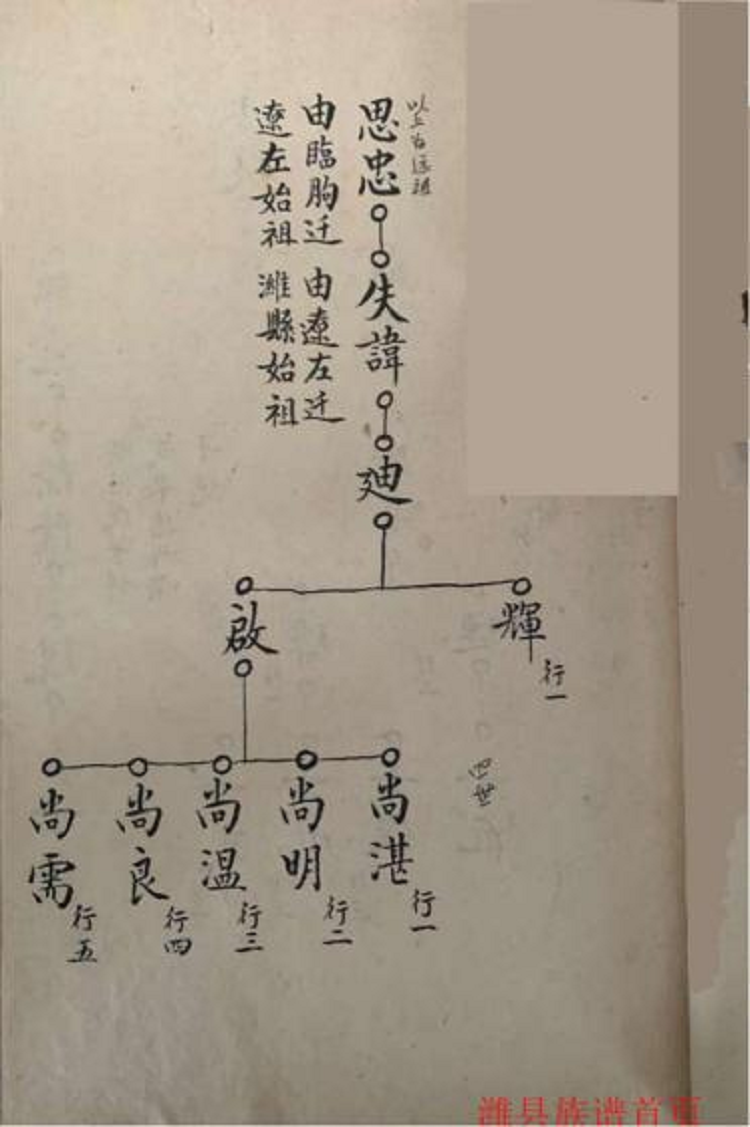 以上为远祖
思忠
由臨朐迁
遼左始祖
失諱
由遼左迁
濰縣始祖
廸
輝
行一
啟
四世
尚湛
行一
尚明
行二
尚溫
行三
尚良
行四
尚需
行五
潍县族谱首页